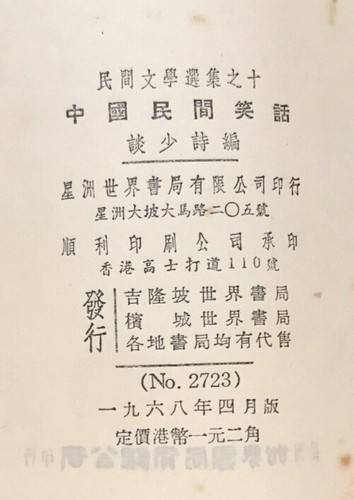 民間文學選集之十
中國民間笑話
談少詩編
星洲世界書局有限公司印行
星洲大坡大馬路二〇五號
順利印刷公司承印
香港高士打道110號
發行
吉隆坡世界書局
檳城世界書局
各地書局均有代售
(No. 2723)
一九六八年四月版
定價港幣一元二角